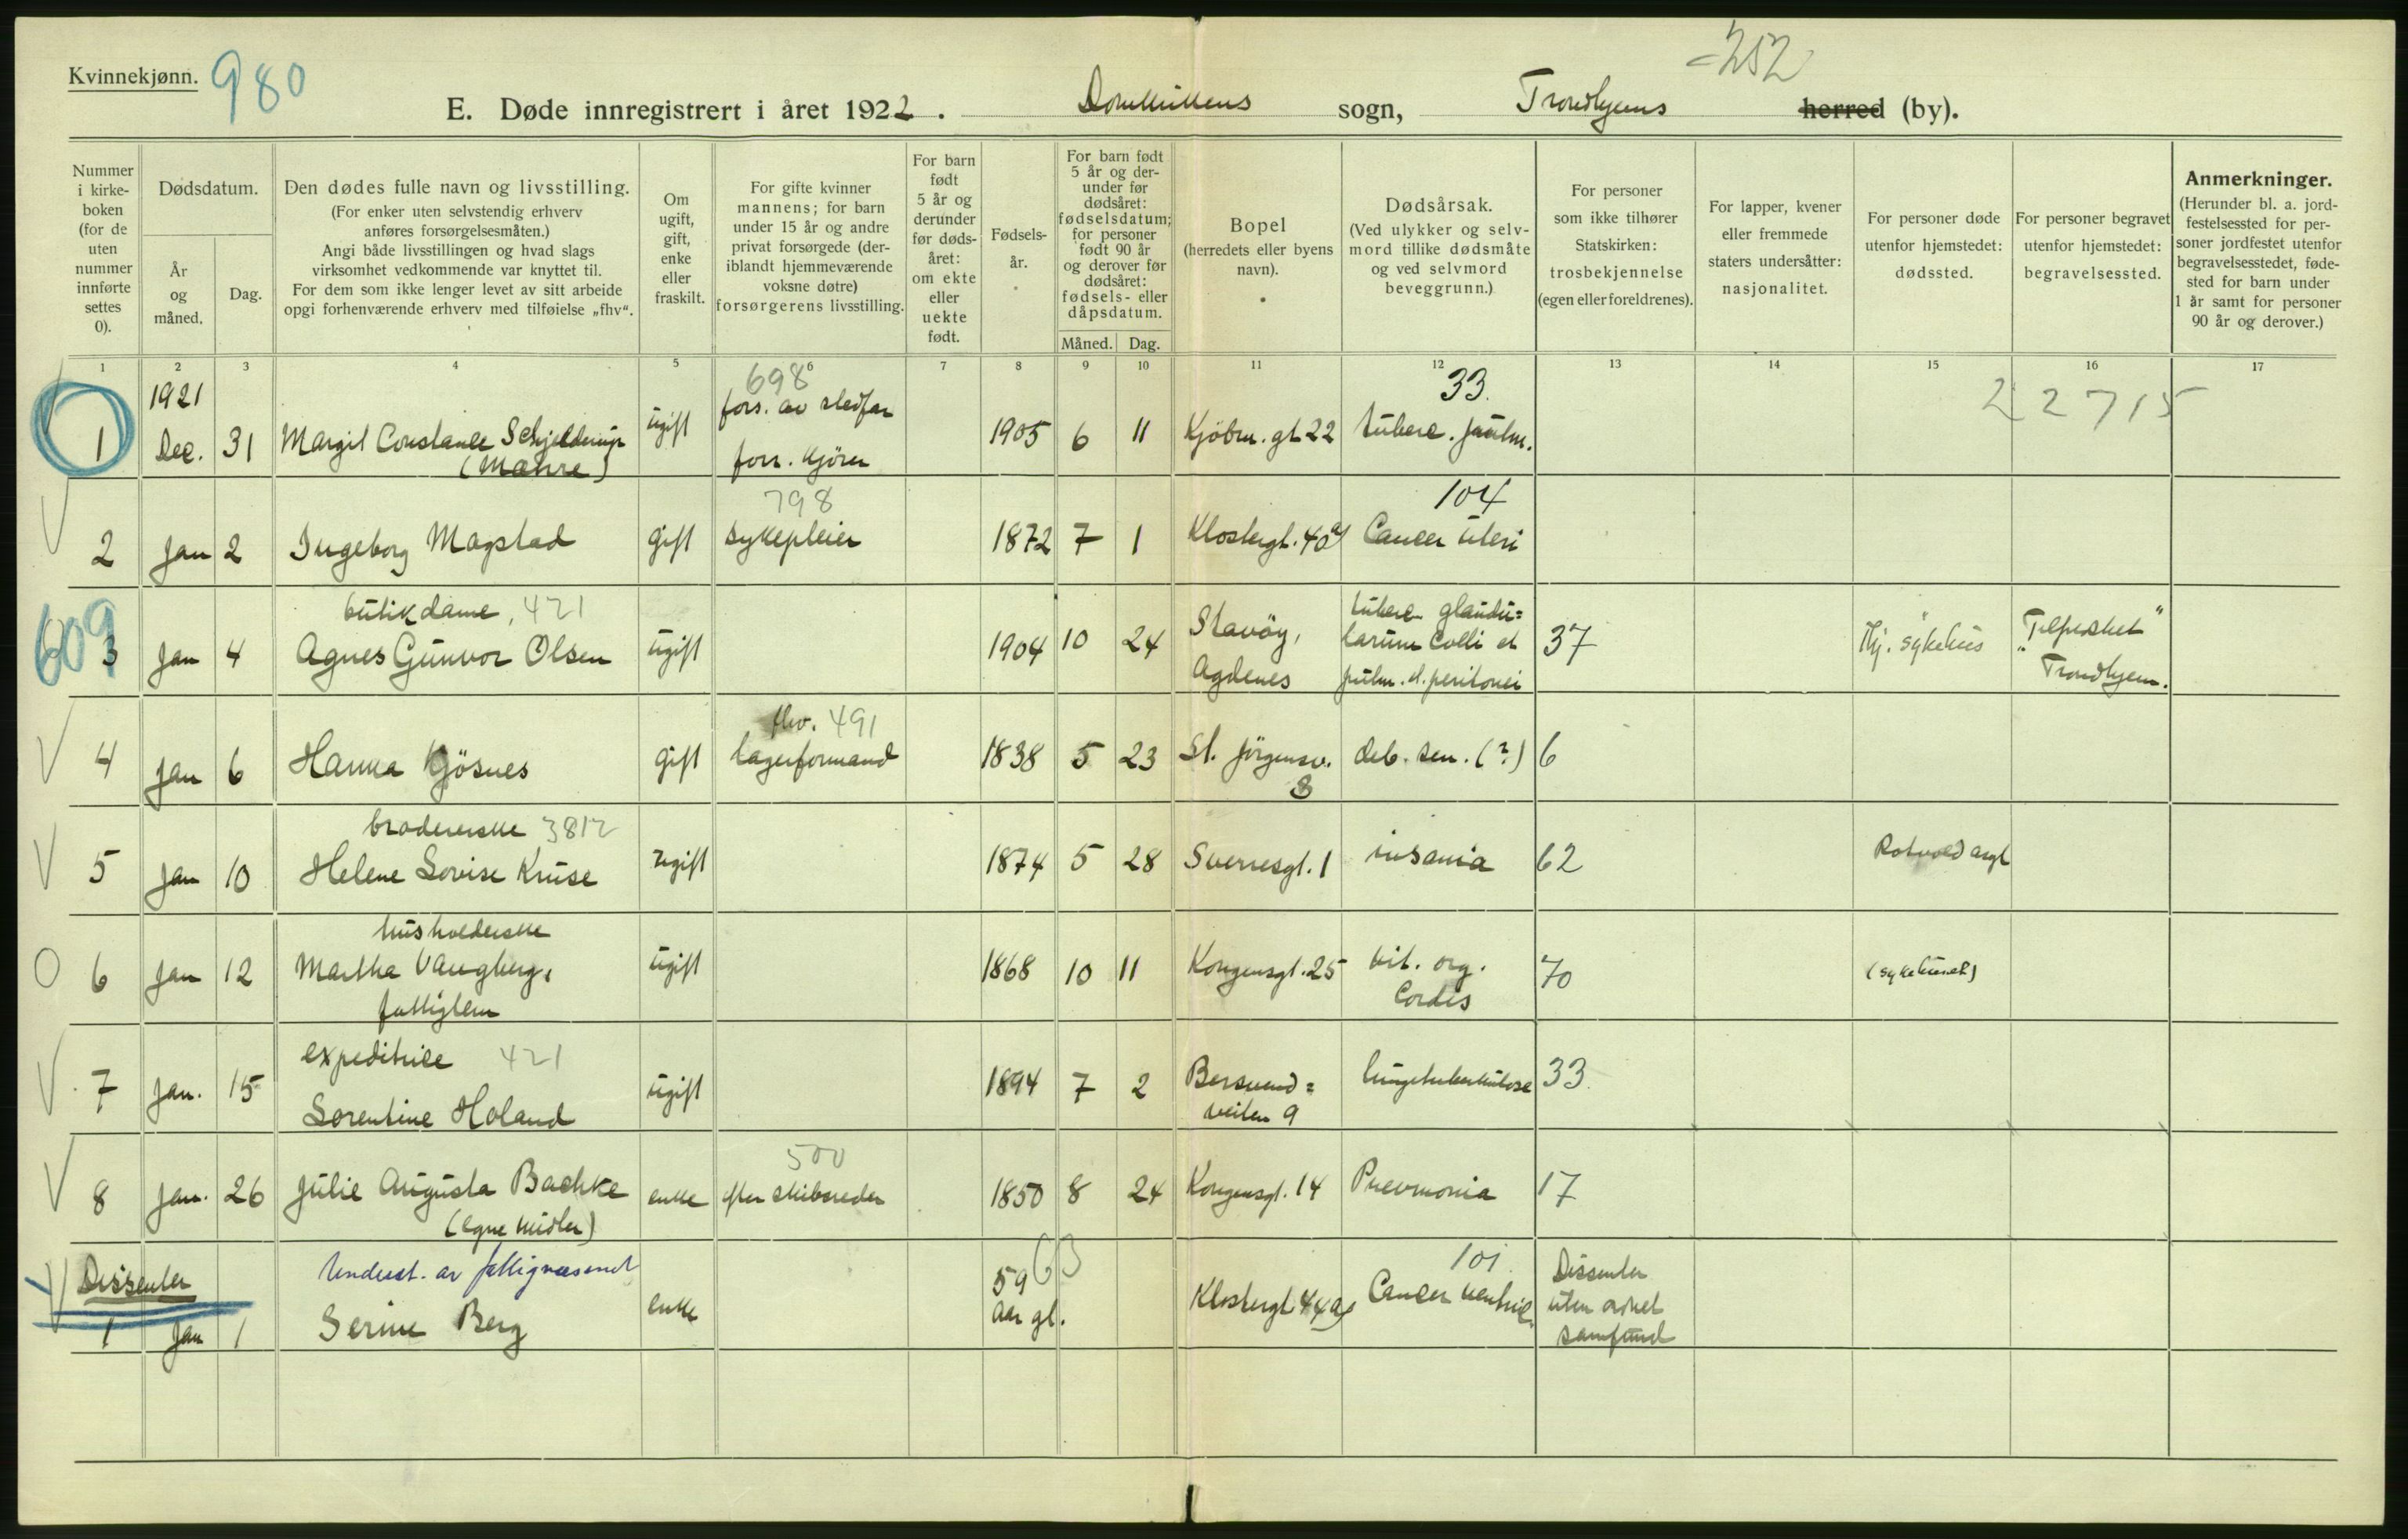 Kvinnekjønn. 980
=252
E. Døde innregistrert i året 1922. Domkirkens sogn, Trondhjems herred (by).
Nummer i kirkeboken (for de uten nummer innførte settes 0).
Dødsdatum.
År og måned.
Dag.
Den dødes fulle navn og livsstilling.
(For enker uten selvstendig erhverv
anføres forsørgelsesmåten.)
Angi både livsstillingen og hvad slags
virksomhet vedkommende var knyttet til.
For dem som ikke lenger levet av sitt arbeide
opgi forhenværende erhverv med tilføielse „fhv“.
Om ugift, gift, enke eller fraskilt.
For gifte kvinner
mannens; for barn
under 15 år og andre
privat forsørgede (der-
iblandt hjemmeværende
voksne døtre)
forsørgerens livsstilling.
For barn født 5 år og derunder før dødsåret: om ekte eller uekte født.
Fødsels-
år.
For barn født
5 år og der-
under før
dødsåret:
fødselsdatum;
for personer
født 90 år
og derover før
dødsåret:
fødsels- eller
dåpsdatum.
Måned. Dag.
Bopel
(herredets eller byens
navn).
Dødsårsak.
(Ved ulykker og selv-
mord tillike dødsmåte
og ved selvmord
beveggrunn.)
For personer
som ikke tilhører
Statskirken:
trosbekjennelse
(egen eller foreldrenes).
For lapper, kvener
eller fremmede
staters undersåtter:
nasjonalitet.
For personer døde
utenfor hjemstedet:
dødssted.
For personer begravet
utenfor hjemstedet:
begravelsessted.
Anmerkninger.
(Herunder bl. a. jord-
festelsessted for per-
soner jordfestet utenfor
begravelsesstedet, føde-
sted for barn under
1 år samt for personer
90 år og derover.)
1 2 3 4 5 6 7 8 9 10 11 12 13 14 15 16 17
1921 698 33. 22715
fors. av stedfar
1 Dec. 31 Margit Constance Schjelderup ugift 1905 6 11 Kjøbm. gt 22 tuberc. pulm.
(Mæhre) forr. kjører
798 104
2 Jan 2 Ingeborg Magstad gift sykepleier 1872 7 1 Klostergt. 40a Cancer uteri
609 butikdame, 421 tuberc glandu=
3 Jan 4 Agnes Gunvor Olsen ugift 1904 10 24 Stavöy, larum Colli et 37 Hj. sykehus "Tilfredshet"
Agdenes pulm. et. peritonei Trondhjem.
fhv. 491
4 Jan 6 Hanna Kjösnes gift lagerformand 1838 5 23 St. Jörgensv. deb. sen. (?) 6
3
broderiske 3812
5 Jan 10 Helene Lovise Kruse ugift 1874 5 28 Sverresgt. 1 insania 62 Rotvold asyl
husholderske
6 Jan 12 Martha Vangberg, ugift 1868 10 11 Kongensgt. 25 vit. org. 70 (sykehuset)
fattiglem Cordis
expeditrice 421
7 Jan. 15 Lorentine Holand ugift 1894 7 2 Bersvend= lungetuberkulose 33
veiten 9
500
8 Jan. 26 Julie Augusta Bachke enke efter skibsreder 1850 8 24 Kongensgt. 14 Pnevmonia 17
(egne midler)
Dissenter Underst. av fattigvæsenet 59 63 101 Dissenter
1 Jan 1 Serine Berg enke aar gl. Klostergt 44a Cancer ventric. uten ordnet
samfund